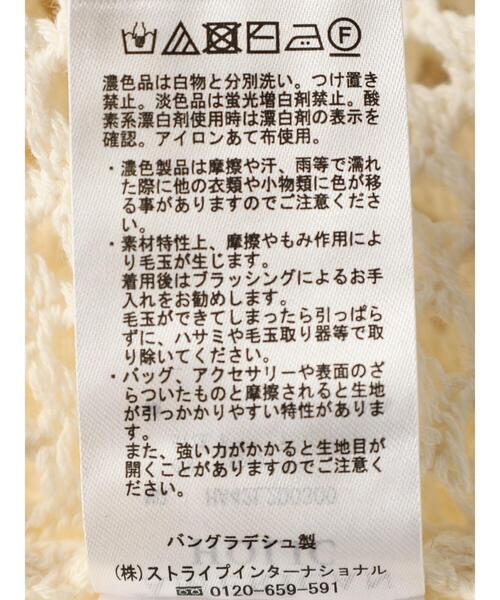 濃色品は白物と分別洗い。つけ置き
禁止。淡色品は蛍光増白剤禁止。酸
素系漂白剤使用時は漂白剤の表示を
確認。アイロンあて布使用。
・濃色製品は摩擦や汗、雨等で濡れ
た際に他の衣類や小物類に色が移
る事がありますのでご注意くださ
い。
・素材特性上、摩擦やもみ作用によ
り毛玉が生じます。
着用後はブラッシングによるお手
入れをお勧めします。
毛玉ができてしまったら引っぱら
ずに、ハサミや毛玉取り器等で取
り除いてください。
・バッグ、アクセサリーや表面のざ
らついたものと摩擦されると生地
が引っかかりやすい特性がありま
す。
また、強い力がかかると生地目が
開くことがありますのでご注意く
ださい。
バングラデシュ製
(株)ストライプインターナショナル
0120-659-591